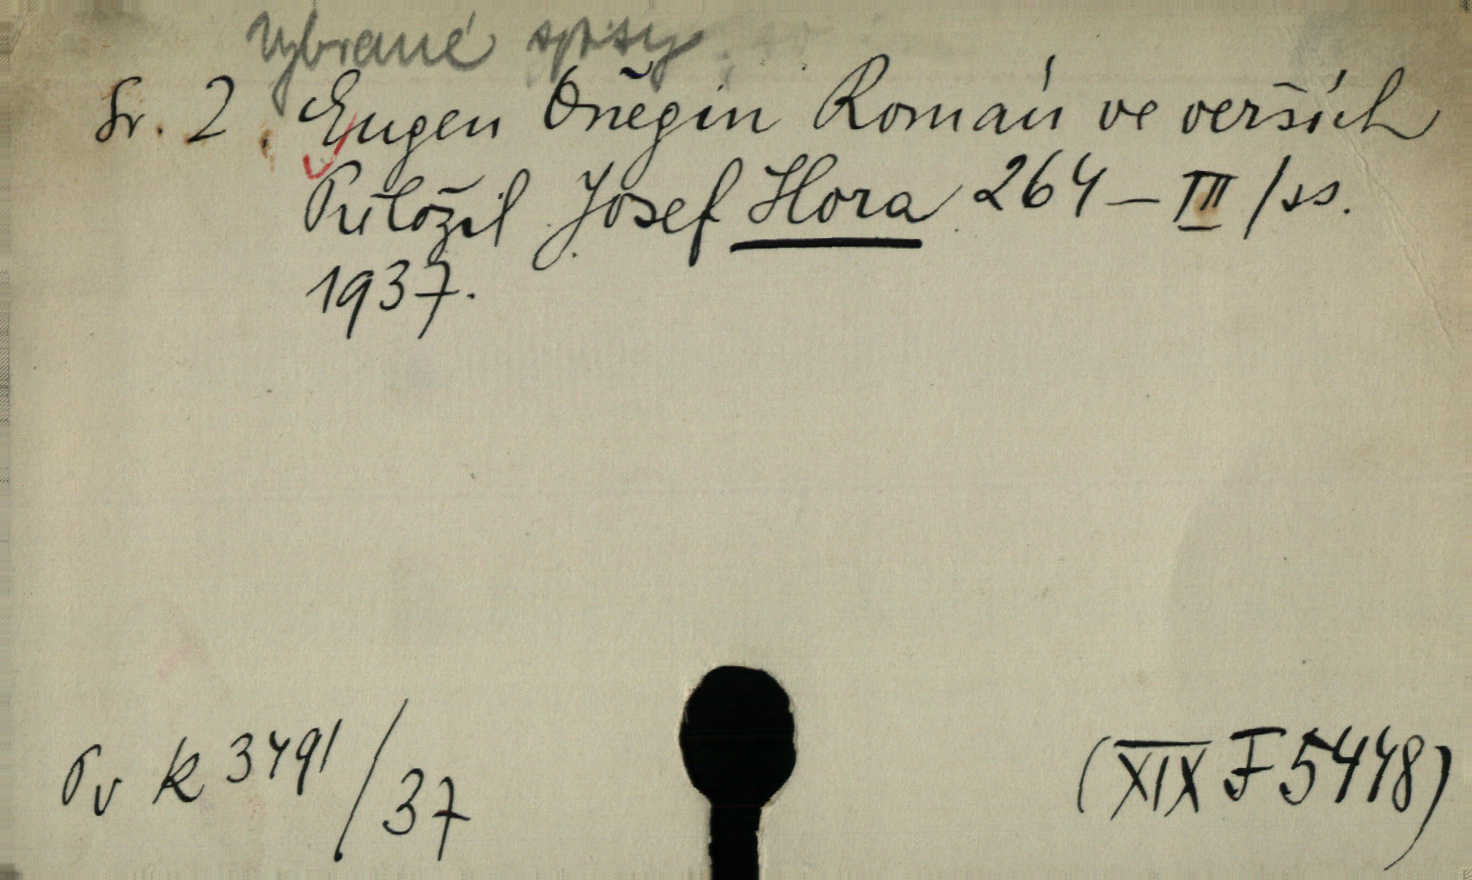 Vybrané spisy.
Sv. 2. Eugen Oněgin Román ve verších
Přeložil Josef Hora 264 – III /ss.
1937.
Pv k 3491/37
(XIX F 5448)